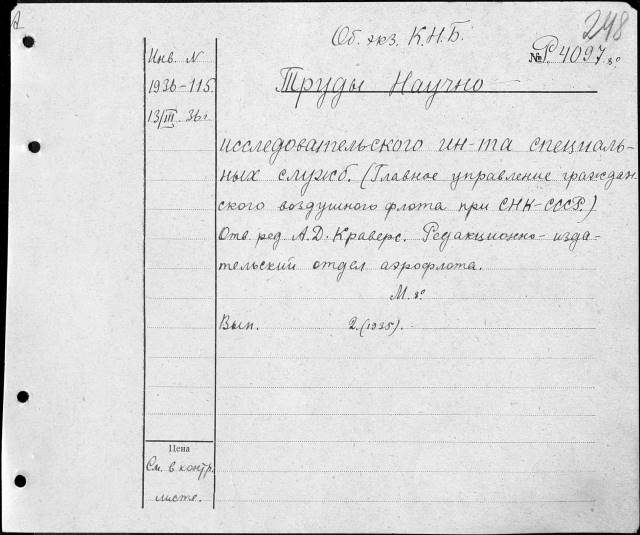 248
Об. экз. К.Н.Б.
№ Р. 4097 8°
Инв. N
1936-115.
13/III 36 г.
Труды Научно-
исследовательского ин-та специаль-
ных служб. (Главное управление граждан-
ского воздушного флота при СНК-СССР.)
Отв. ред. А.Д. Краверс. Редакционно-изда-
тельский отдел аэрофлота.
М. 8°
Вып. 2. (1935).
Цена
См. в контр.
листе.